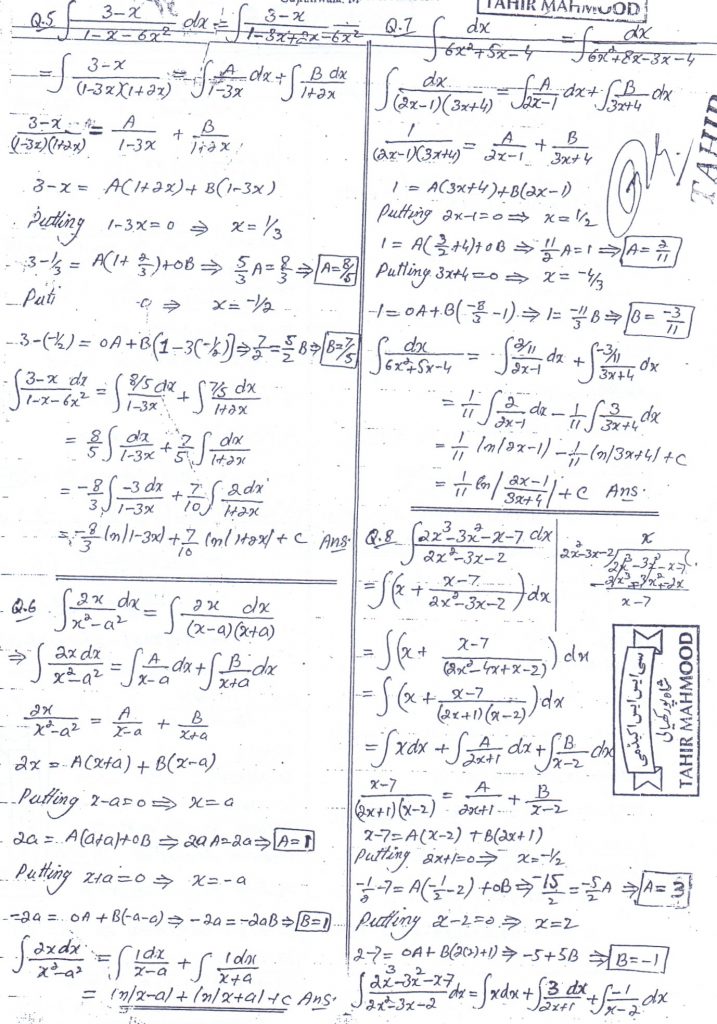 TAHIR MAHMOOD
Q.5 ∫ 3-x / 1-x-6x² dx = ∫ 3-x / 1-3x+2x-6x²
= ∫ 3-x / (1-3x)(1+2x) = ∫ A / 1-3x dx + ∫ B dx / 1+2x
3-x / (1-3x)(1+2x) = A / 1-3x + B / 1+2x
3-x = A(1+2x) + B(1-3x)
Putting 1-3x=0 ⇒ x = 1/3
3-1/3 = A(1+2/3)+0B ⇒ 5/3 A = 8/3 ⇒ A=8/5
Putti 0 ⇒ x = -1/2
3-(-1/2) = 0A+B[1-3(-1/2)] ⇒ 7/2 = 5/2 B ⇒ B=7/5
∫ 3-x dx / 1-x-6x² = ∫ 8/5 dx / 1-3x + ∫ 7/5 dx / 1+2x
= 8/5 ∫ dx / 1-3x + 7/5 ∫ dx / 1+2x
= -8/3 ∫ -3 dx / 1-3x + 7/10 ∫ 2dx / 1+2x
= -8/3 ln|1-3x| + 7/10 ln|1+2x| + C Ans.
Q.6 ∫ 2x dx / x²-a² = ∫ 2x dx / (x-a)(x+a)
⇒ ∫ 2x dx / x²-a² = ∫ A / x-a dx + ∫ B / x+a dx
2x / x²-a² = A / x-a + B / x+a
2x = A(x+a) + B(x-a)
Putting x-a=0 ⇒ x = a
2a = A(a+a)+0B ⇒ 2aA=2a ⇒ A=1
Putting x+a=0 ⇒ x = -a
-2a = 0A+B(-a-a) ⇒ -2a = -2aB ⇒ B=1
∫ 2x dx / x²-a² = ∫ 1dx / x-a + ∫ 1dx / x+a
= ln|x-a| + ln|x+a| + C Ans.
Q.7 ∫ dx / 6x²+5x-4 = ∫ dx / 6x²+8x-3x-4
∫ dx / (2x-1)(3x+4) = ∫ A / 2x-1 dx + ∫ B / 3x+4 dx
1 / (2x-1)(3x+4) = A / 2x-1 + B / 3x+4
1 = A(3x+4)+B(2x-1)
Putting 2x-1=0 ⇒ x=1/2
1 = A(3/2+4)+0B ⇒ 11/2 A=1 ⇒ A=2/11
Putting 3x+4=0 ⇒ x = -4/3
1 = 0A+B(-8/3 -1) ⇒ 1= -11/3 B ⇒ B= -3/11
∫ dx / 6x²+5x-4 = ∫ 2/11 / 2x-1 dx + ∫ -3/11 / 3x+4 dx
= 1/11 ∫ 2 / 2x-1 dx - 1/11 ∫ 3 / 3x+4 dx
= 1/11 ln|2x-1| - 1/11 ln|3x+4| + C
= 1/11 ln| 2x-1 / 3x+4 | + C Ans.
Q.8 ∫ 2x³-3x²-x-7 dx / 2x²-3x-2
x
2x²-3x-2
2x³-3x²-x-7
x-7
= ∫(x + x-7 / 2x²-3x-2) dx
= ∫(x + x-7 / (2x²-4x+x-2)) dx
= ∫(x + x-7 / (2x+1)(x-2)) dx
= ∫xdx + ∫ A / 2x+1 dx + ∫ B / x-2 dx
x-7 / (2x+1)(x-2) = A / 2x+1 + B / x-2
x-7 = A(x-2) + B(2x+1)
Putting 2x+1=0 ⇒ x=-1/2
-1/2-7 = A(-1/2-2)+0B ⇒ -15/2 = -5/2 A ⇒ A=3
Putting x-2=0 ⇒ x=2
2-7 = 0A+B(2(2)+1) ⇒ -5+5B ⇒ B=-1
∫ 2x³-3x²-x-7 / 2x²-3x-2 dx = ∫xdx + ∫ 3 dx / 2x+1 + ∫ -1 / x-2 dx
TAHIR
TAHIR MAHMOOD